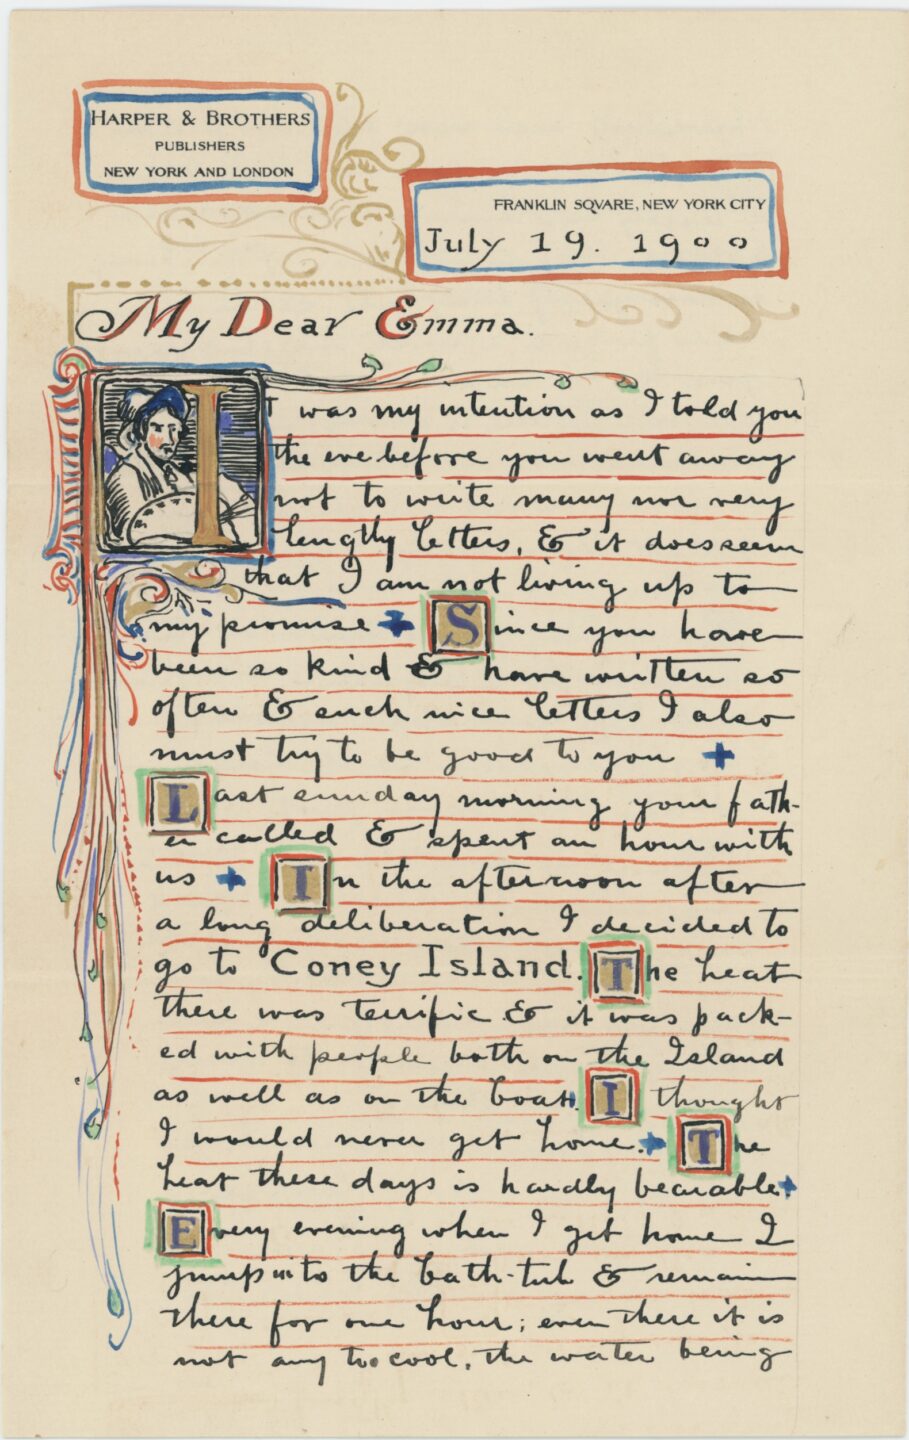 HARPER & BROTHERS
PUBLISHERS
NEW YORK AND LONDON
FRANKLIN SQVARE, NEW YORK CITY
July 19. 1900
My Dear Emma.
IT was my intention as I told you
the eve before you went away
not to write many nor very
lengthy letters, & it does seem
that I am not living up to
my promise Since you have
been so kind & have written so
often & such nice letters I also
must try to be good to you
Last sunday morning your fath-
er called & spent an hour with
us In the afternoon after
a long deliberation I decided to
go to Coney Island. The heat
there was terrific & it was pack-
ed with people both on the Island
as well as on the boats. I thought
I would never get home. The
heat these days is hardly bearable
Every evening when I get home I
jump into the bath-tub & remain
there for one hour; even there it is
not any too cool, the water being